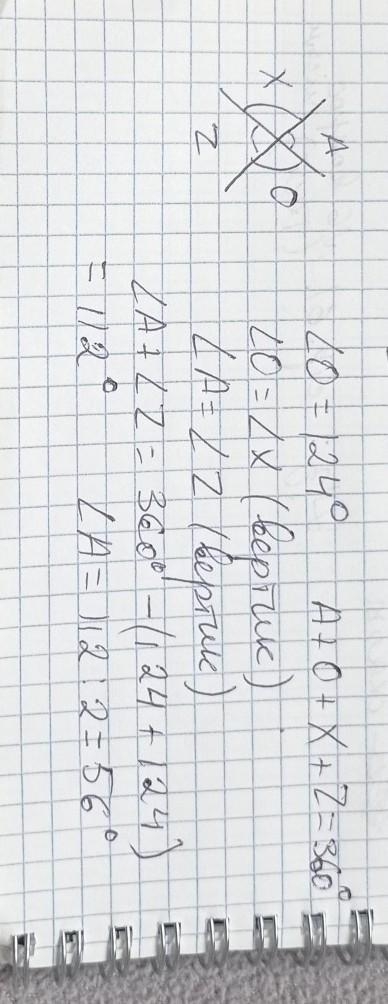 A
X O
Z
∠O = 124° A + O + X + Z = 360°
∠O = ∠X (вертик)
∠A = ∠Z (вертик)
∠A + ∠Z = 360° - (124 + 124)
= 112° ∠A = 112 : 2 = 56°